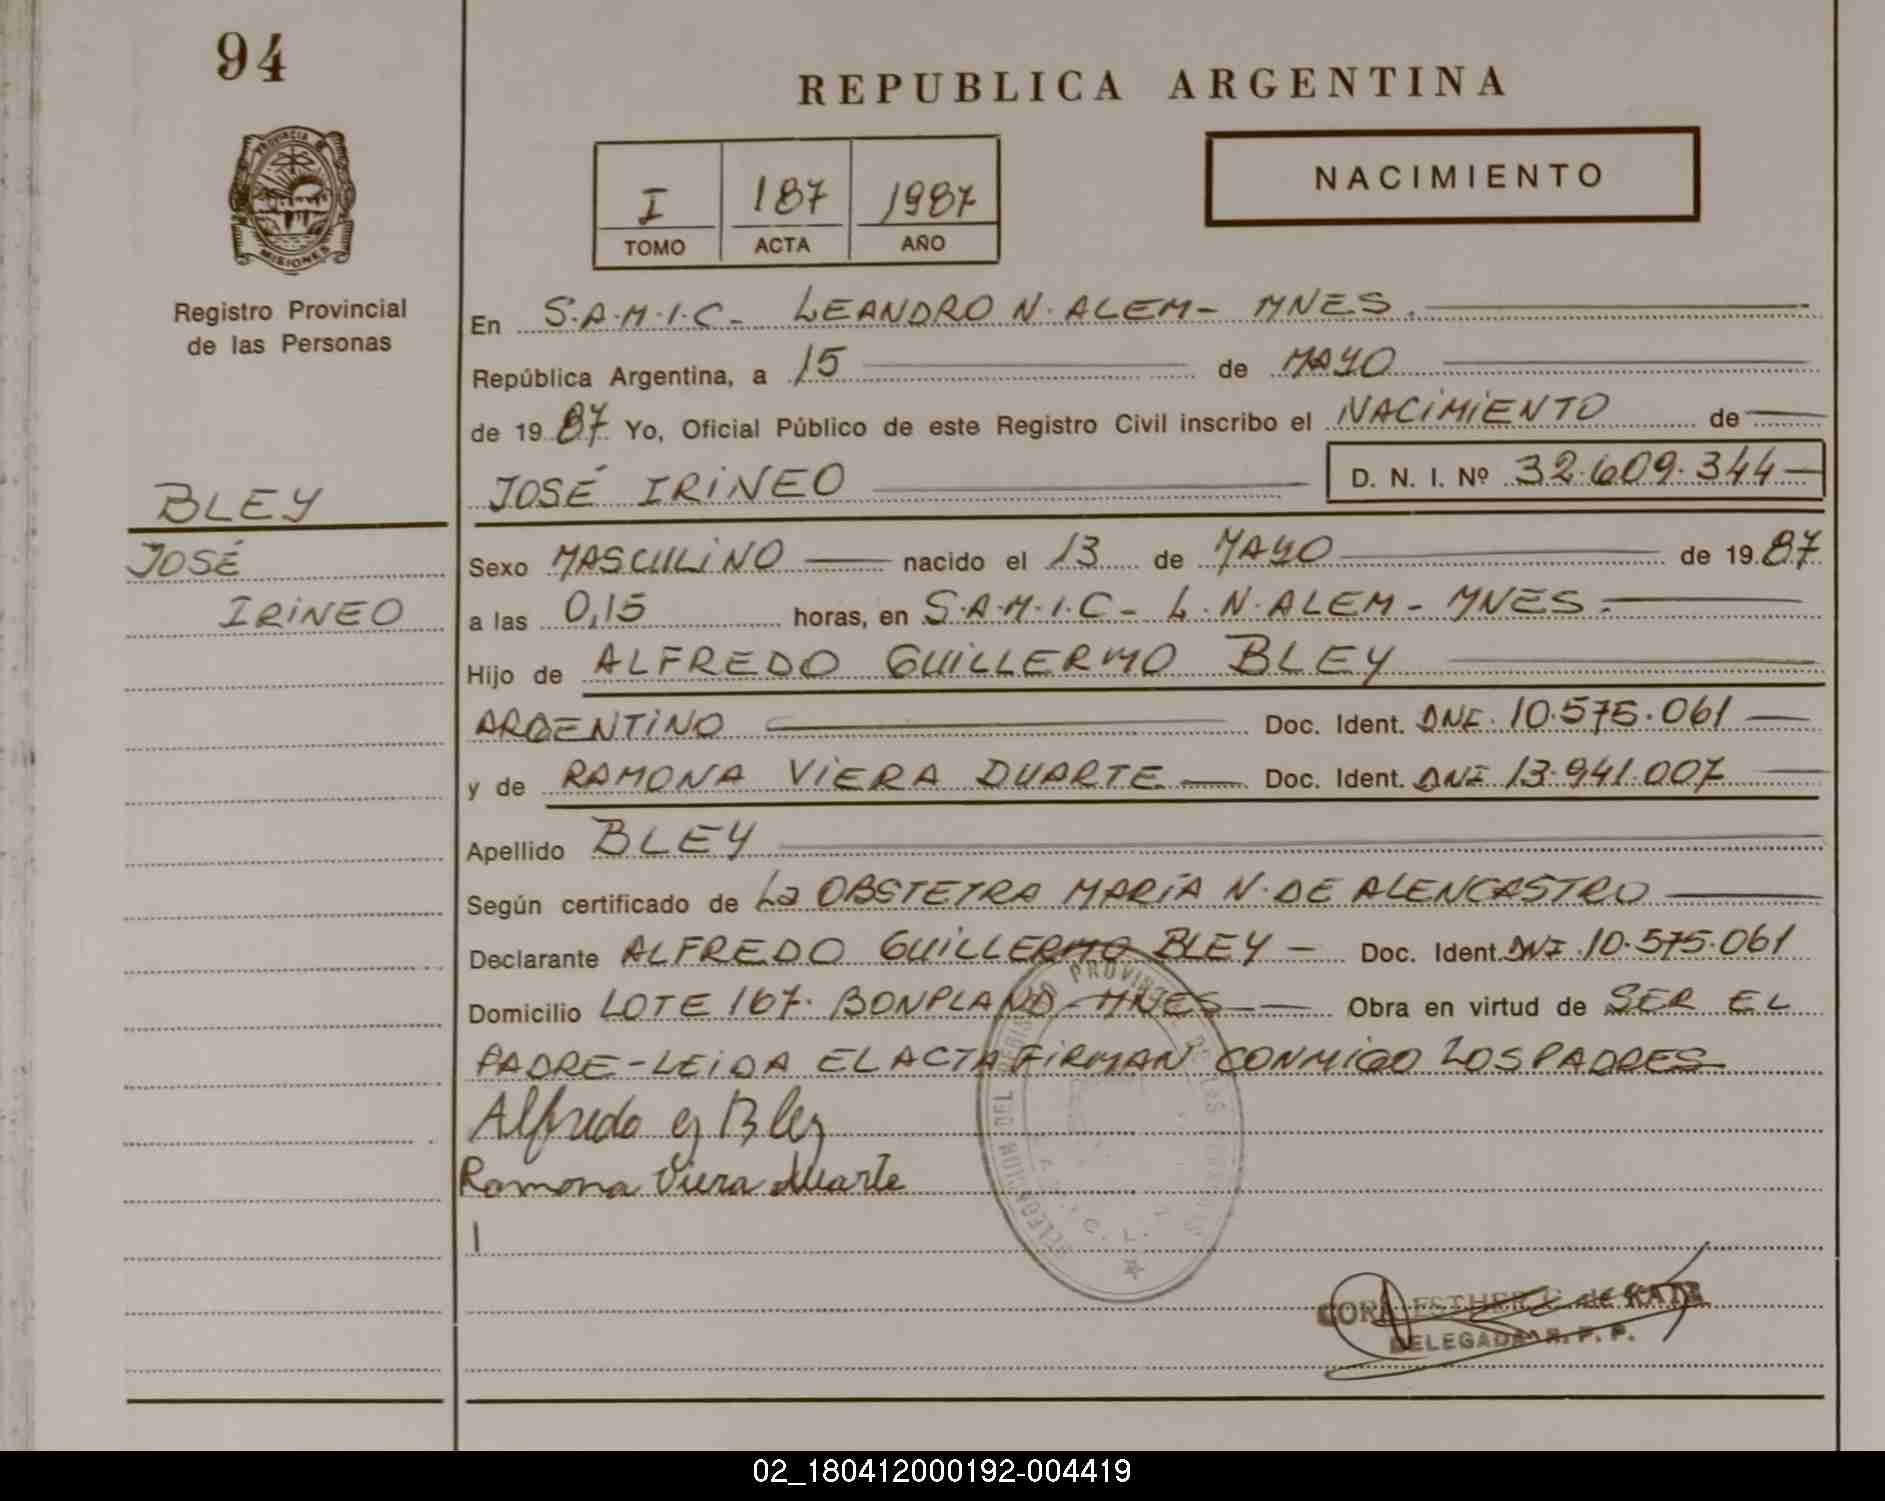 94
REPUBLICA ARGENTINA
PROVINCIA
MISIONES
I 187 1987
TOMO ACTA AÑO
NACIMIENTO
Registro Provincial
de las Personas
En S.A.M.I.C- LEANDRO N. ALEM- MNES.
República Argentina, a 15 de MAYO
de 1987 Yo, Oficial Público de este Registro Civil inscribo el NACIMIENTO de
JOSÉ IRINEO D. N. I. Nº 32.609.344
BLEY
JOSÉ
IRINEO
Sexo MASCULINO nacido el 13 de MAYO de 1987
a las 0,15 horas, en S.A.M.I.C- L.N.ALEM- MNES.
Hijo de ALFREDO GUILLERMO BLEY
ARGENTINO Doc. Ident. DNI. 10.575.061
y de RAMONA VIERA DUARTE Doc. Ident. DNI 13.941.007
Apellido BLEY
Según certificado de La OBSTETRA MARÍA N. DE ALENCASTRO
Declarante ALFREDO GUILLERMO BLEY - Doc. Ident. DNI 10.575.061
Domicilio LOTE 167. BONPLAND-MNES Obra en virtud de SER EL
PADRE-LEIDA EL ACTA FIRMAN CONMIGO LOS PADRES
Alfredo G Bley
Ramona Viera Duarte
DELEGADA R. P. P.
02_180412000192-004419